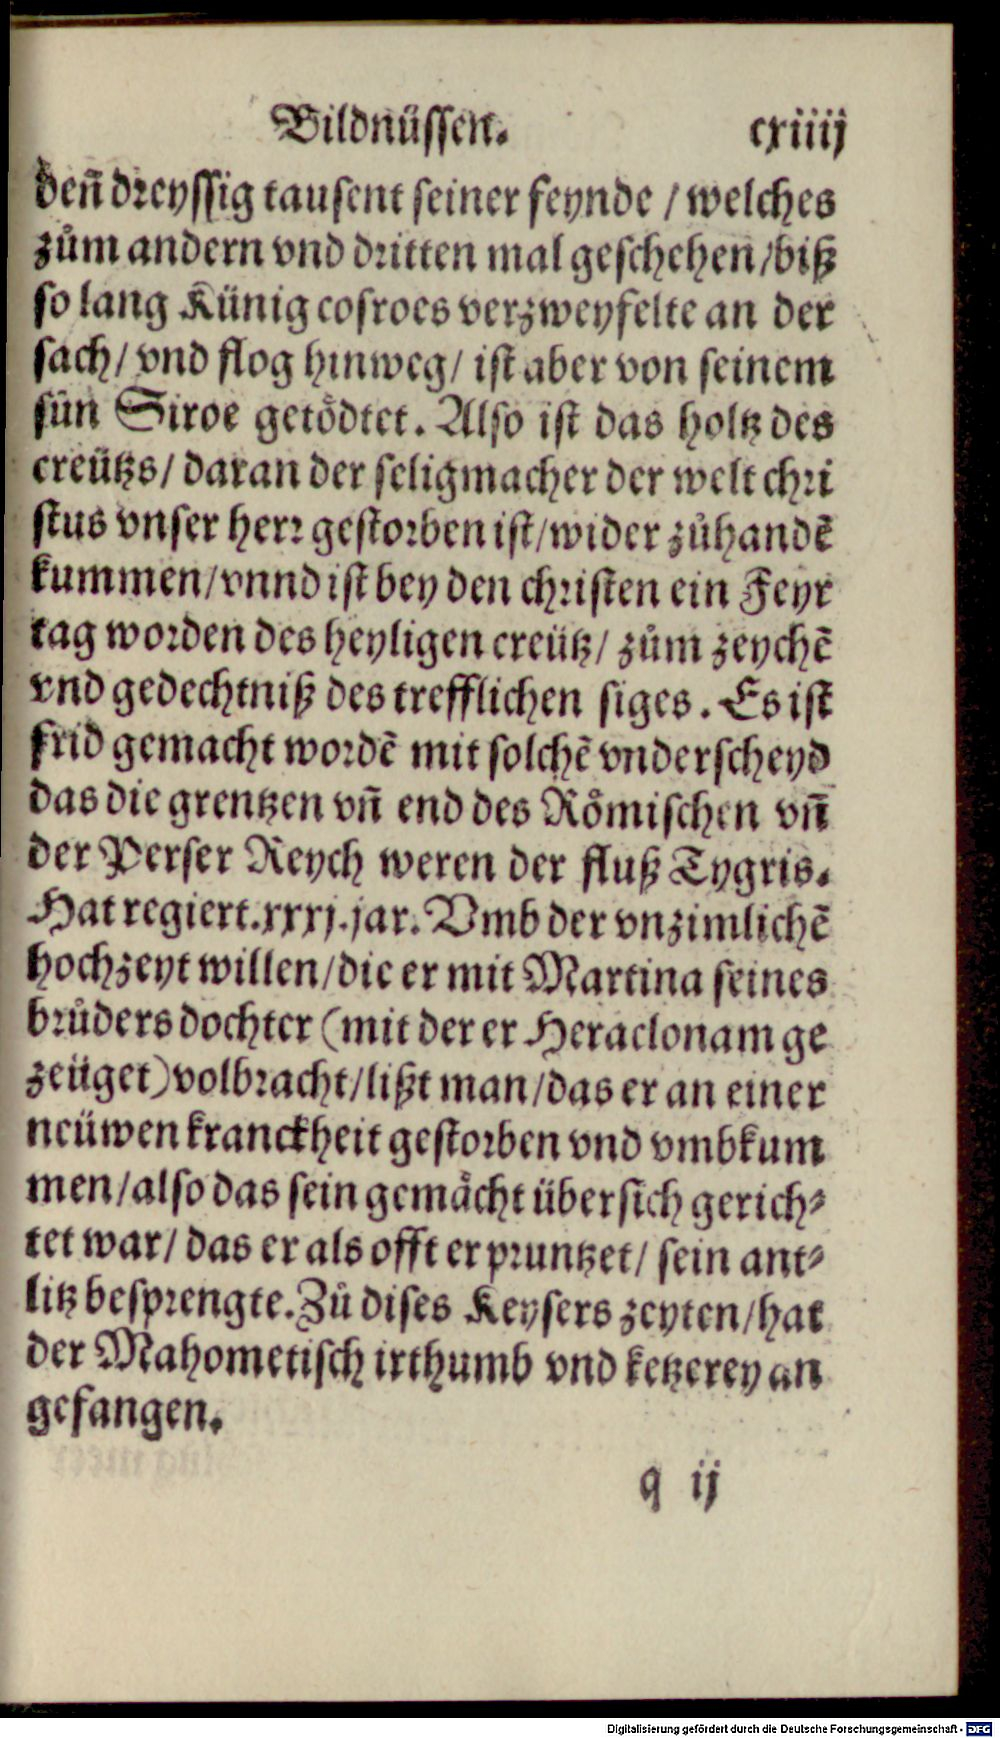 Bildnüssen. cxiiij
den̄ dreyssig tausent seiner feynde / welches
zům andern vnd dritten mal geschehen/biß
so lang Künig cosroes verzweyfelte an der
sach/ vnd flog hinweg/ ist aber von seinem
sün Siroe getödtet. Also ist das holtz des
creützs/ daran der seligmacher der welt chri
stus vnser herr gestorben ist/wider zůhandē
kummen/vnnd ist bey den christen ein Feyr
tag worden des heyligen creütz/ zům zeychē
vnd gedechtniß des trefflichen siges. Es ist
frid gemacht wordē mit solchē vnderscheyd
das die grentzen vn̄ end des Römischen vn̄
der Perser Reych weren der fluß Tygris.
Hat regiert.xxxj.jar. Vmb der vnzimlichē
hochzeyt willen/die er mit Martina seines
brůders dochter (mit der er Heraclonam ge
zeüget)volbracht/lißt man/das er an einer
neüwen kranckheit gestorben vnd vmbkum
men/also das sein gemächt übersich gerich⸗
tet war/ das er als offt er pruntzet/ sein ant⸗
litz besprengte.Zů dises Keysers zeyten/hat
der Mahometisch irthumb vnd ketzerey an
gefangen.
q ij
Digitalisierung gefördert durch die Deutsche Forschungsgemeinschaft - DFG